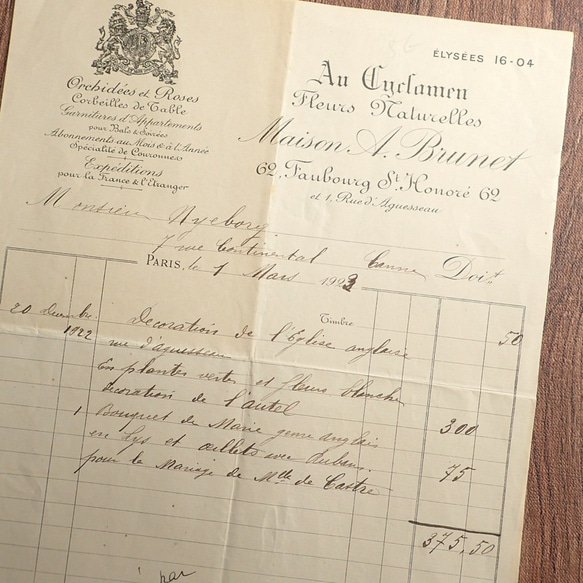 ÉLYSÉES 16-04
Au Cyclamen
Fleurs Naturelles
Maison A. Brunet
62, Faubourg St. Honoré 62
et 1, Rue d'Aguesseau
Orchidées et Roses
Corbeilles de Table
Garnitures d'Appartements
pour Bals & Soirées
Abonnements au Mois & à l'Année
Spécialité de Couronnes
Expéditions
pour la France & l'Etranger
Monsieur
7 rue Continental Doit
PARIS, le 1 Mars 1923
Timbre 50
20 1922
Decoration de l'Eglise anglaise
rue d'aguesseau
En plantes vertes et fleurs blanches
decoration de l'autel 300
1 Bouquet de Mariée genre anglais
en Lys et œillets avec ruban. 75
pour le Mariage de Mlle de Castre
375,50
par